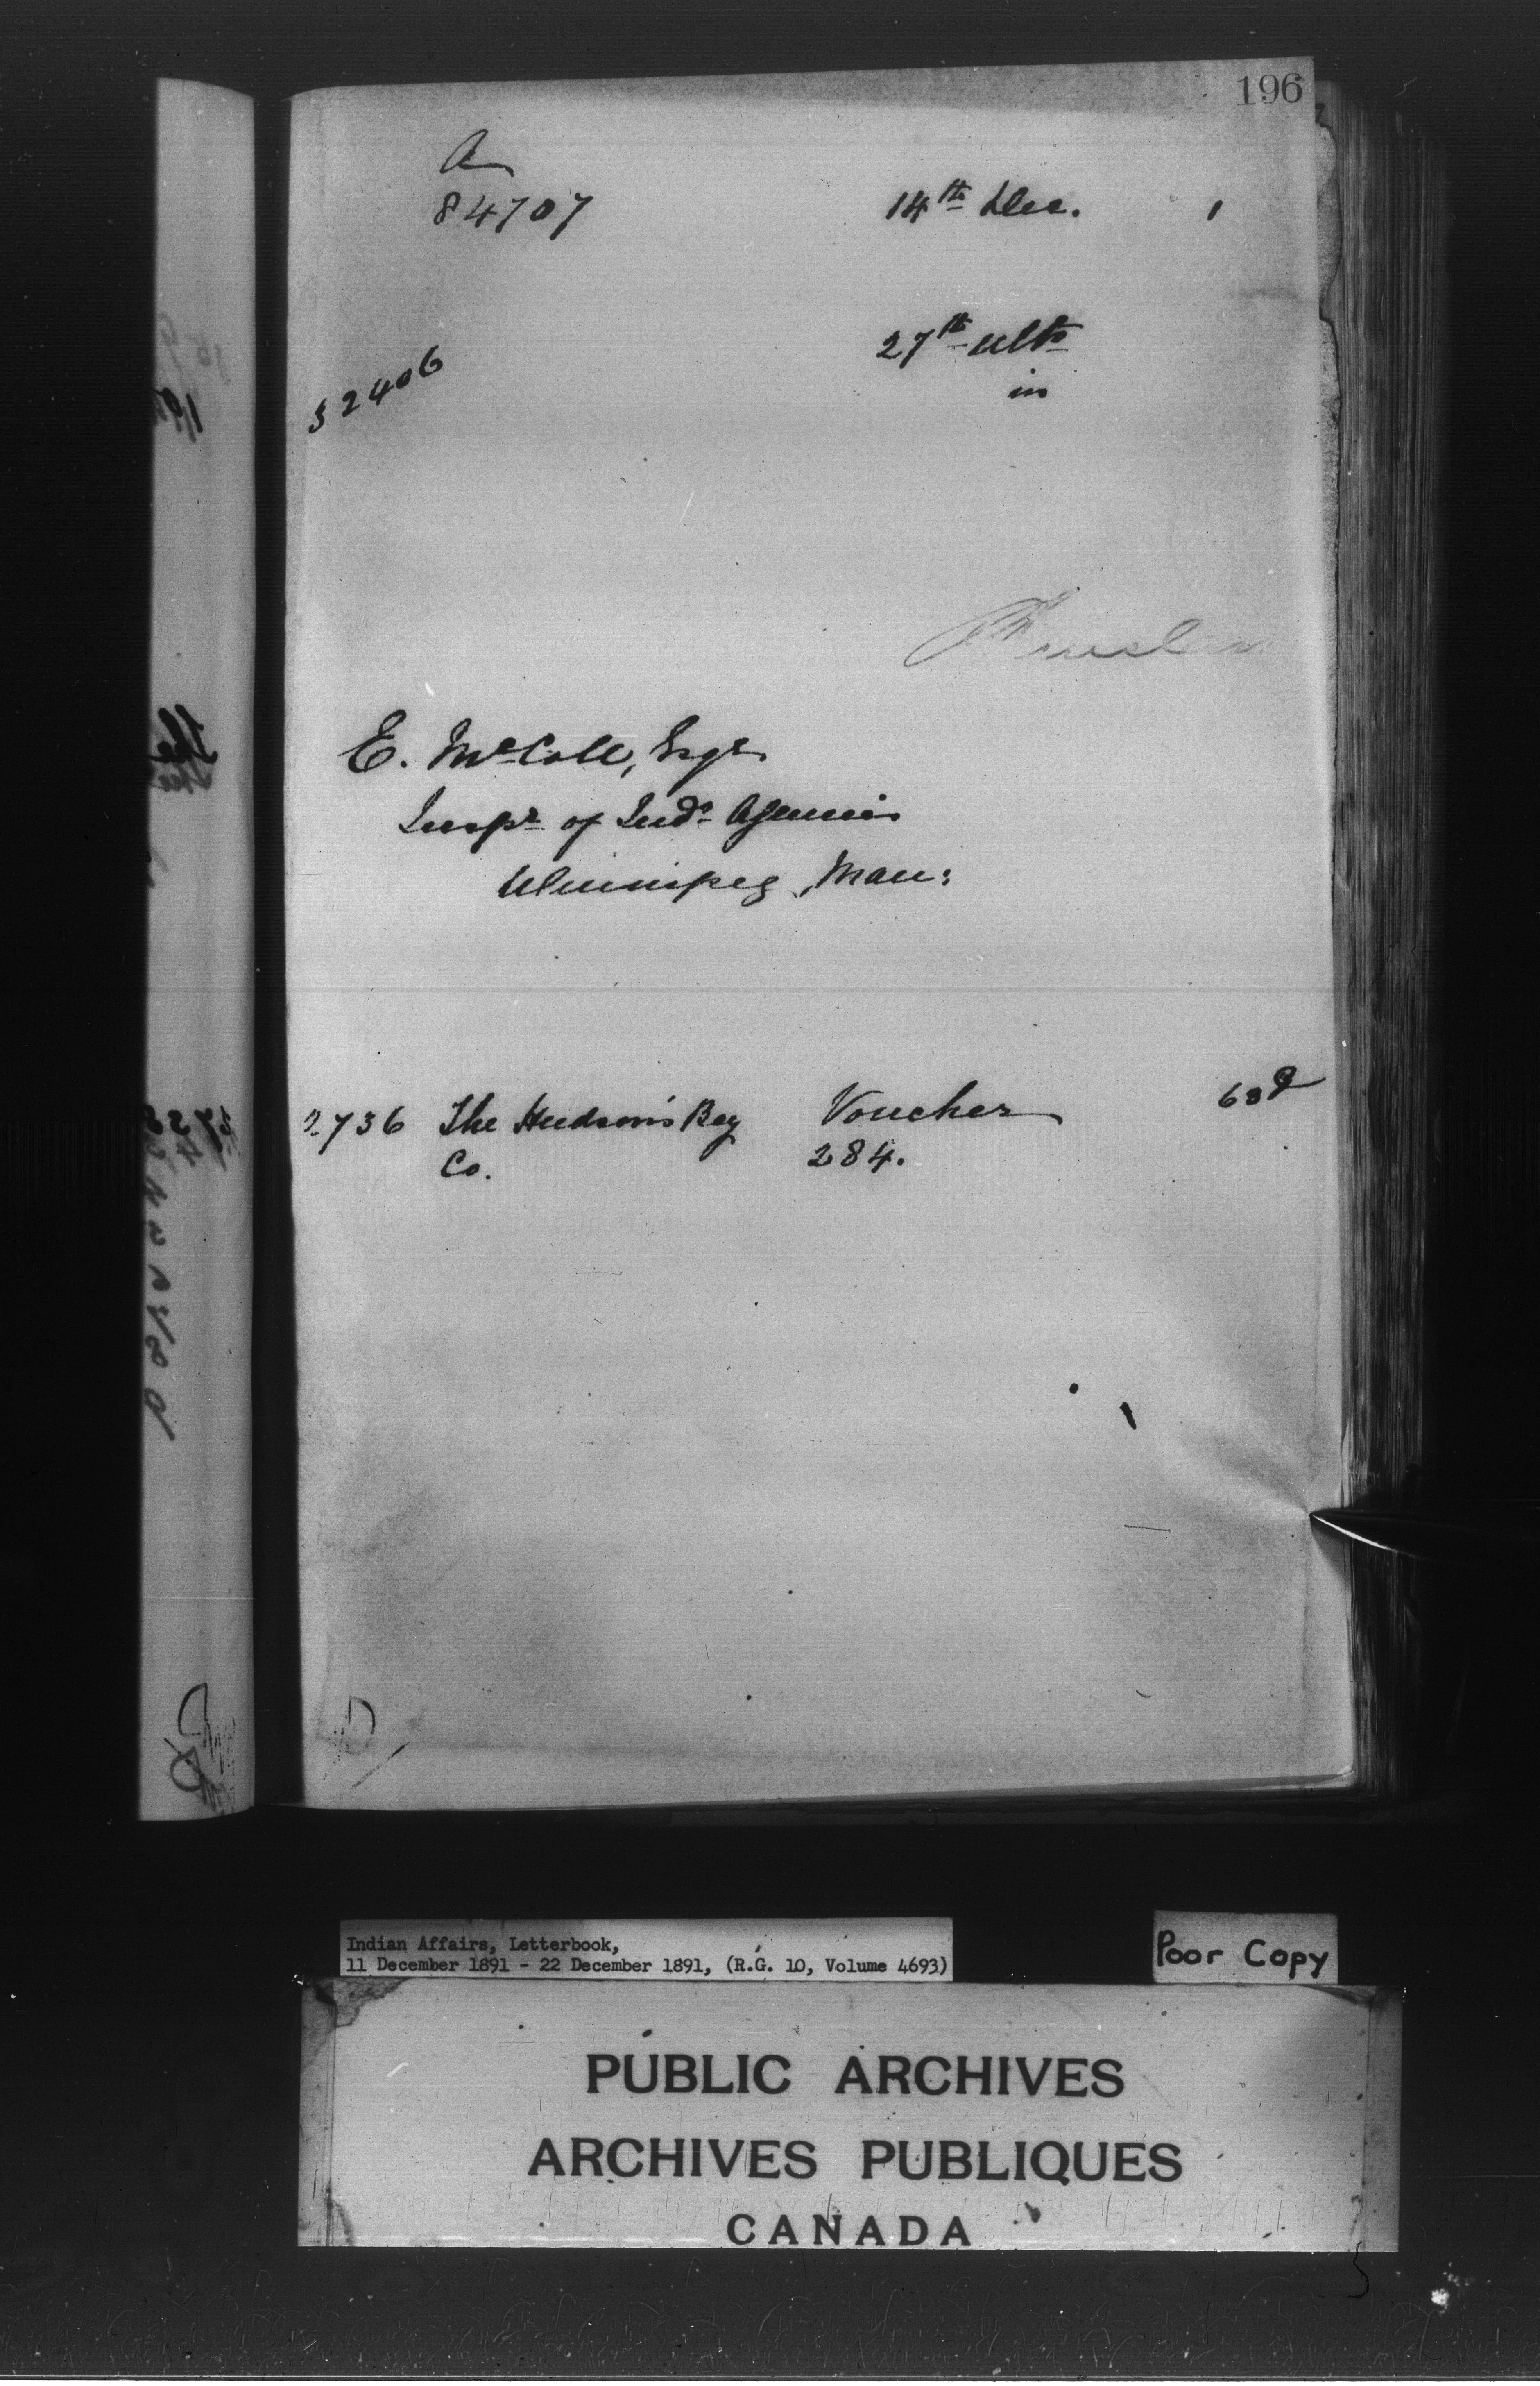 196
A
84707 14th Dec. 1
27th ulto
52406 in
E. McColl, Esqr
Inspr of Indn Agencies
Winnipeg, Man:
2736 The Hudson's Bay Voucher 68
Co. 284.
Indian Affairs, Letterbook,
11 December 1891 - 22 December 1891, (R.G. 10, Volume 4693)
Poor Copy
PUBLIC ARCHIVES
ARCHIVES PUBLIQUES
CANADA